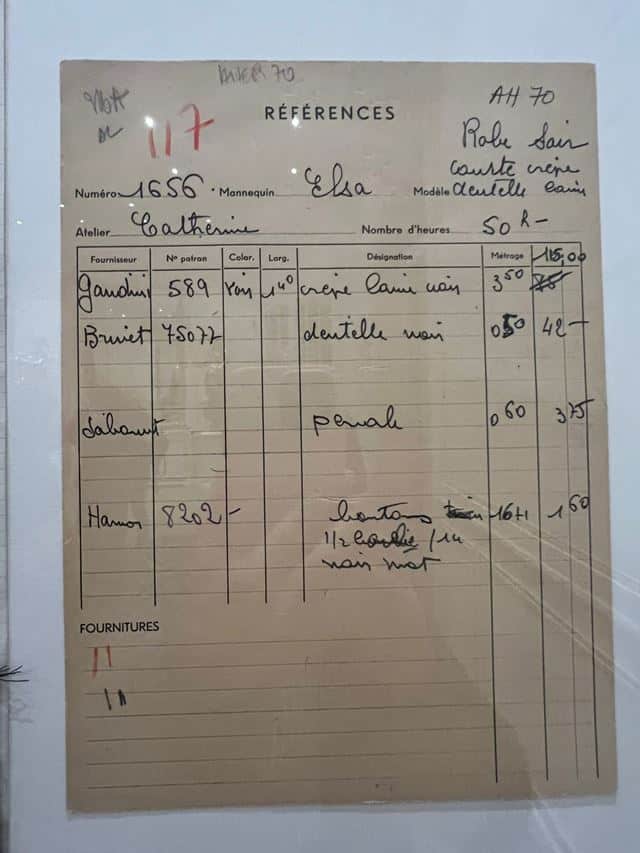 HIVER 70
AH 70
117
RÉFÉRENCES
Robe Soir
courte crêpe
Numéro 1656 · Mannequin Elsa Modèle dentelle laine
Atelier Catherine Nombre d'heures 50 h -
Fournisseur Nº patron Color. Larg. Désignation Métrage 115,00
589 noir 140 crêpe laine noir 3 50
75077 dentelle noir 0 50 42 -
percale 0 60 3 75
8202 - boutons 16+1 1 60
1/2
noir mat
FOURNITURES
11